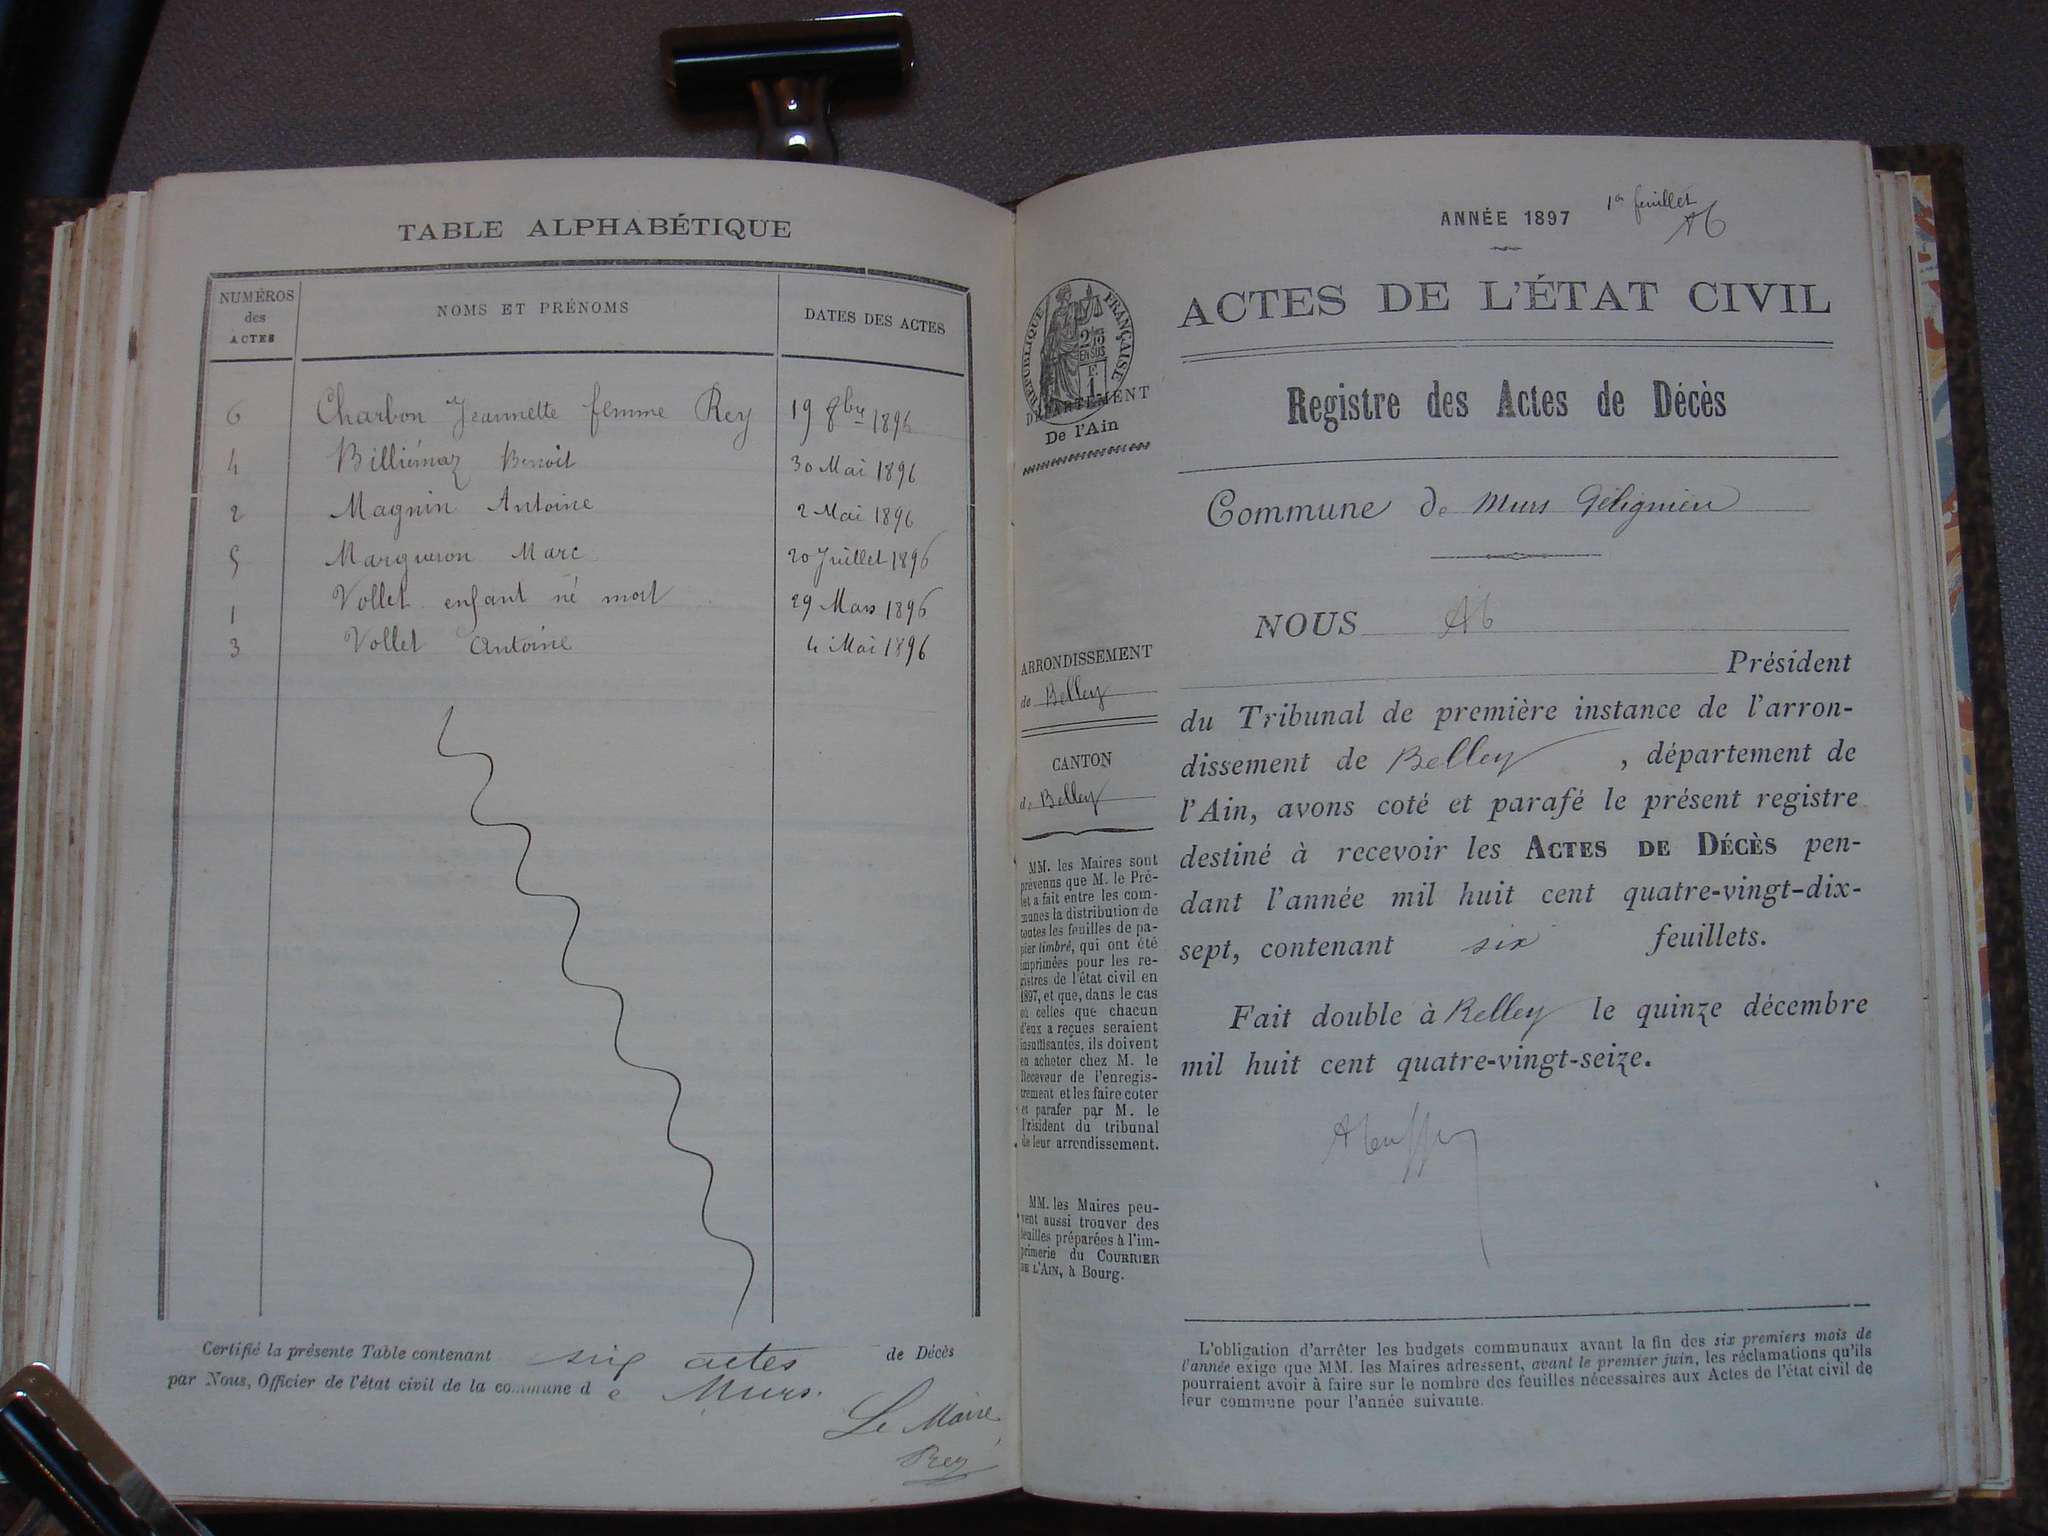 TABLE ALPHABÉTIQUE
NUMÉROS
des
ACTES
NOMS ET PRÉNOMS
DATES DES ACTES
6 Charbon Jeannette femme Rey 19 8bre 1896
4 Billiémaz Benoit 30 Mai 1896
2 Magnin Antoine 2 Mai 1896
5 Margueron Marc 20 Juillet 1896
1 Vollet enfant né mort 29 Mars 1896
3 Vollet Antoine 4 Mai 1896
Certifié la présente Table contenant six actes de Décès
par Nous, Officier de l'état civil de la commune de Murs.
Le Maire
Rey
ANNÉE 1897
1er feuillet
ACTES DE L'ÉTAT CIVIL
RÉPUBLIQUE FRANÇAISE
2/10
EN SUS
F.
1
DÉPARTEMENT
De l'Ain
Registre des Actes de Décès
Commune de Murs Gélignieu
NOUS
Président
du Tribunal de première instance de l'arron-
dissement de Belley, département de
l'Ain, avons coté et parafé le présent registre
destiné à recevoir les ACTES DE DÉCÈS pen-
dant l'année mil huit cent quatre-vingt-dix-
sept, contenant six feuillets.
Fait double à Belley le quinze décembre
mil huit cent quatre-vingt-seize.
ARRONDISSEMENT
de Belley
CANTON
de Belley
MM. les Maires sont
prévenus que M. le Pré-
fet a fait entre les com-
munes la distribution de
toutes les feuilles de pa-
pier timbré, qui ont été
imprimées pour les re-
gistres de l'état civil en
1897, et que, dans le cas
où celles que chacun
d'eux a reçues seraient
insuffisantes, ils doivent
en acheter chez M. le
Receveur de l'enregis-
trement et les faire coter
et parafer par M. le
Président du tribunal
de leur arrendissement.
MM. les Maires peu-
vent aussi trouver des
feuilles préparées à l'im-
primerie du COURRIER
DE L'AIN, à Bourg.
L'obligation d'arrêter les budgets communaux avant la fin des six premiers mois de
l'année exige que MM. les Maires adressent, avant le premier juin, les réclamations qu'ils
pourraient avoir à faire sur le nombre des feuilles nécessaires aux Actes de l'état civil de
leur commune pour l'année suivante.